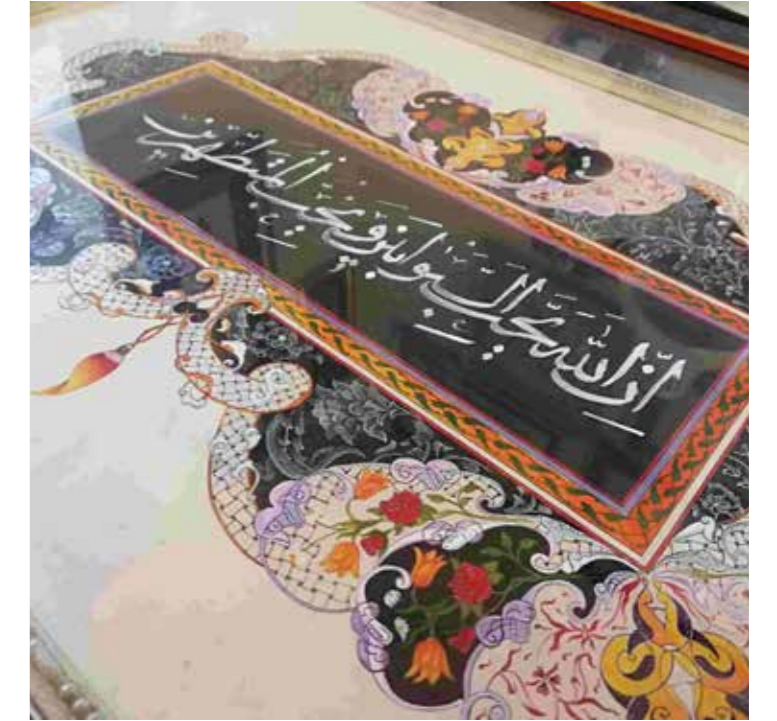 اِنَّ اللّٰهَ یُحِبُّ التَّوّابینَ وَ یُحِبُّ المُتَطَهِّرینَ